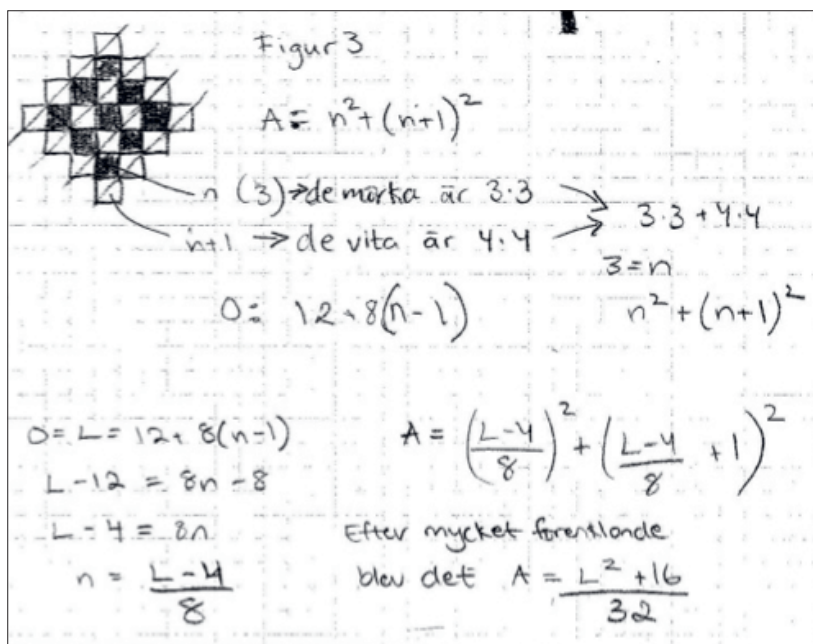 Figur 3
A = n² + (n+1)²
n (3) → de mörka är 3·3
n+1 → de vita är 4·4
3·3 + 4·4
3 = n
n² + (n+1)²
O = 12 + 8(n-1)
O = L = 12 + 8(n-1)
L - 12 = 8n - 8
L - 4 = 8n
n = \frac{L-4}{8}
A = \left(\frac{L-4}{8}\right)^2 + \left(\frac{L-4}{8} + 1\right)^2
Efter mycket förenklande
blev det A = \frac{L^2 + 16}{32}